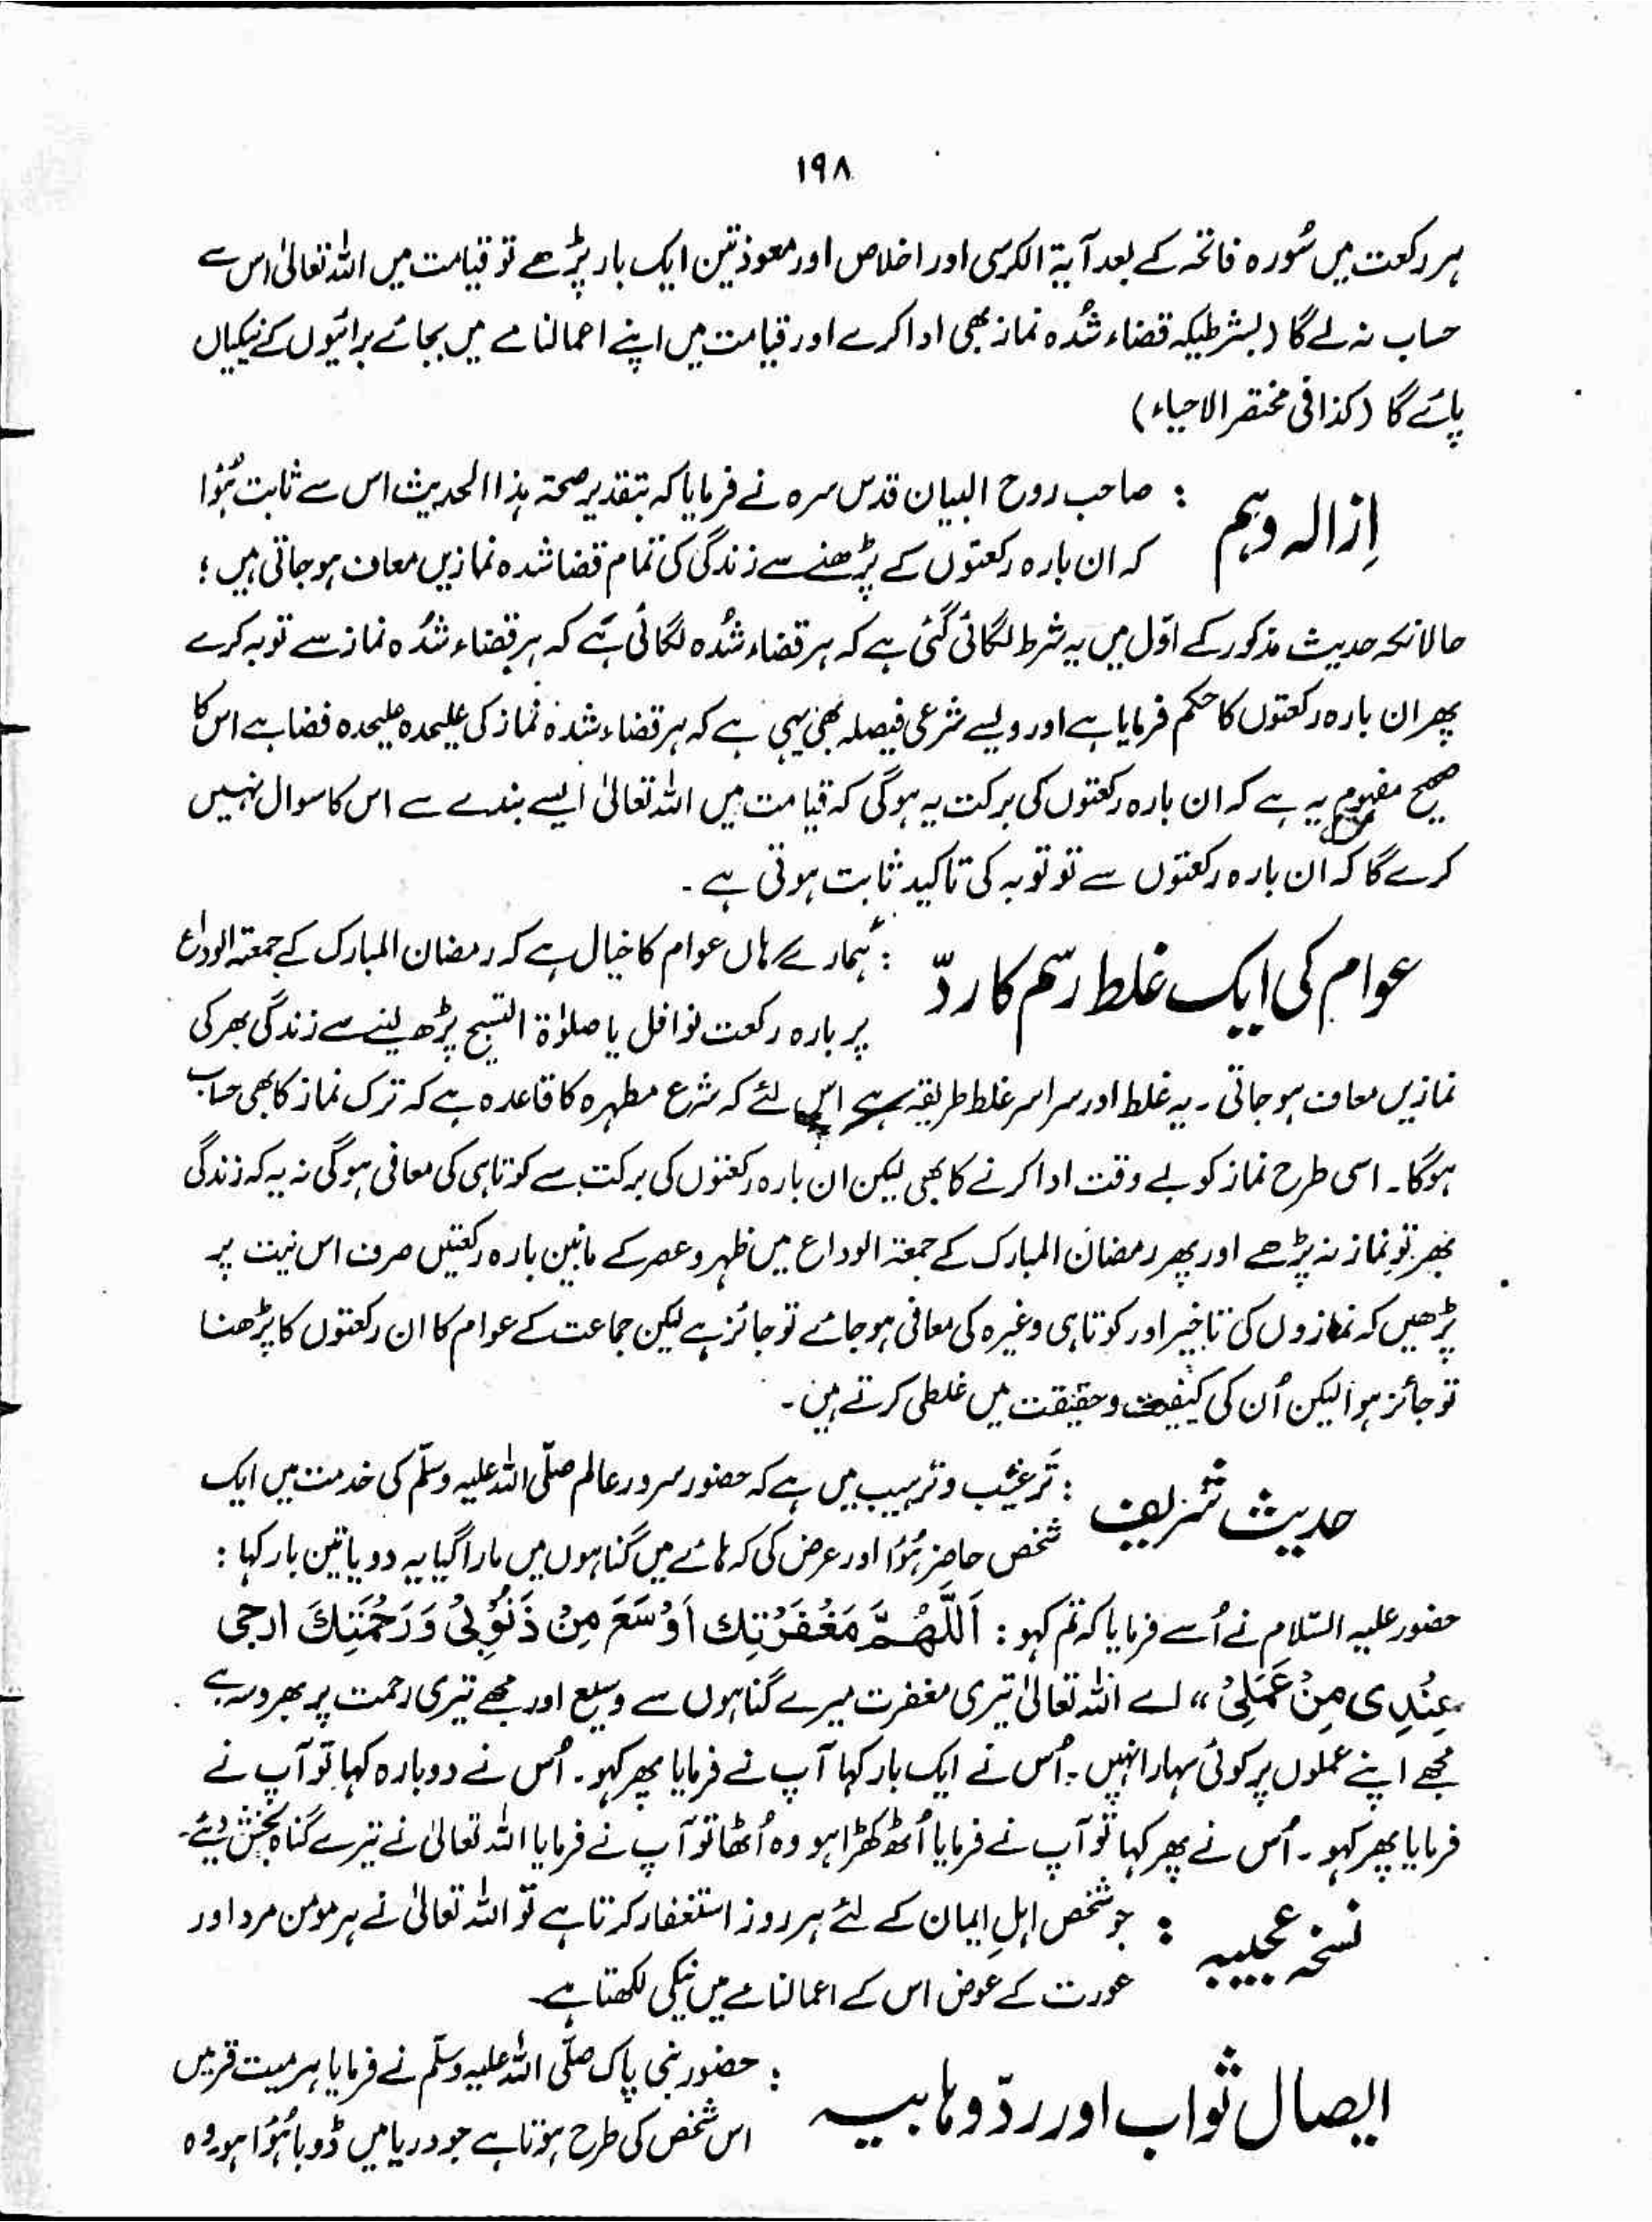 ۱۹۸
ہر رکعت میں سُورہ فاتحہ کے بعد آیۃ الکرسی اور اخلاص اور معوذتین ایک بار پڑھے تو قیامت میں اللہ تعالیٰ اس سے
حساب نہ لے گا (بشرطیکہ قضاء شُدہ نماز بھی ادا کرے اور قیامت میں اپنے اعمالنامے میں بجائے برائیوں کے نیکیاں
پائے گا (کذا فی مختصر الاحیاء)
اِزالہ وہم : صاحب روح البیان قدس سرہ نے فرمایا کہ بتقدیر صحۃ ہذا الحدیث اس سے ثابت ہُوا
کہ ان بارہ رکعتوں کے پڑھنے سے زندگی کی تمام قضا شدہ نمازیں معاف ہو جاتی ہیں ؛
حالانکہ حدیث مذکور کے اوّل میں یہ شرط لگائی گئی ہے کہ ہر قضاء شُدہ لگائی ہے کہ ہر قضاء شُدہ نماز سے توبہ کرے
پھر ان بارہ رکعتوں کا حکم فرمایا ہے اور ویسے شرعی فیصلہ بھی یہی ہے کہ ہر قضاء شدہ نماز کی علیحدہ علیحدہ قضا ہے اس کا
صحیح مفہوم یہ ہے کہ ان بارہ رکعتوں کی برکت یہ ہو گی کہ قیامت میں اللہ تعالیٰ ایسے بندے سے اس کا سوال نہیں
کرے گا کہ ان بارہ رکعتوں سے تو توبہ کی تاکید ثابت ہوتی ہے ۔
عوام کی ایک غلط رسم کا ردّ : ہمارے ہاں عوام کا خیال ہے کہ رمضان المبارک کے جمعۃ الوداع
پر بارہ رکعت نوافل یا صلوٰۃ التسبیح پڑھ لینے سے زندگی بھر کی
نمازیں معاف ہو جاتی ۔ یہ غلط اور سراسر غلط طریقہ ہے اس لئے کہ شرع مطہرہ کا قاعدہ ہے کہ ترک نماز کا بھی حساب
ہوگا ۔ اسی طرح نماز کو بے وقت ادا کرنے کا بھی لیکن ان بارہ رکعتوں کی برکت سے کوتاہی کی معافی ہو گی نہ یہ کہ زندگی
بھر تو نماز نہ پڑھے اور پھر رمضان المبارک کے جمعۃ الوداع میں ظہر و عصر کے مابین بارہ رکعتیں صرف اس نیت پر
پڑھیں کہ نمازوں کی تاخیر اور کوتاہی وغیرہ کی معافی ہو جائے تو جائز ہے لیکن جماعت کے عوام کا ان رکعتوں کا پڑھنا
تو جائز ہوا لیکن اُن کی کیفیت و حقیقت میں غلطی کرتے ہیں ۔
حدیث شریف : ترغیب و ترہیب میں ہے کہ حضور سرور عالم صلّی اللہ علیہ وسلّم کی خدمت میں ایک
شخص حاضر ہُوا اور عرض کی کہ ہائے میں گناہوں میں مارا گیا یہ دو یا تین بار کہا :
حضور علیہ السّلام نے اُسے فرمایا کہ تم کہو : اَللّٰهُمَّ مَغْفَرَتِك اَوْسَعَ مِنْ ذَنُوْبِىْ وَرَحْمَتِكَ ارجى
عِنْدِى مِنْ عَمَلِىْ ،، اے اللہ تعالیٰ تیری مغفرت میرے گناہوں سے وسیع اور مجھے تیری رحمت پر بھروسہ ہے
مجھے اپنے عملوں پر کوئی سہارا نہیں ۔ اُس نے ایک بار کہا آپ نے فرمایا پھر کہو ۔ اُس نے دوبارہ کہا تو آپ نے
فرمایا پھر کہو ۔ اُس نے پھر کہا تو آپ نے فرمایا اُٹھ کھڑا ہو وہ اُٹھا تو آپ نے فرمایا اللہ تعالیٰ نے تیرے گناہ بخش دیئے ۔
نسخہ عجیبہ : جو شخص اہلِ ایمان کے لئے ہر روز استغفار کرتا ہے تو اللہ تعالیٰ نے ہر مومن مرد اور
عورت کے عوض اس کے اعمالنامے میں نیکی لکھتا ہے
ایصال ثواب اور ردّ وہابیہ : حضور نبی پاک صلّی اللہ علیہ وسلّم نے فرمایا ہر میت قبر میں
اس شخص کی طرح ہوتا ہے جو دریا میں ڈوبا ہُوا ہو وہ